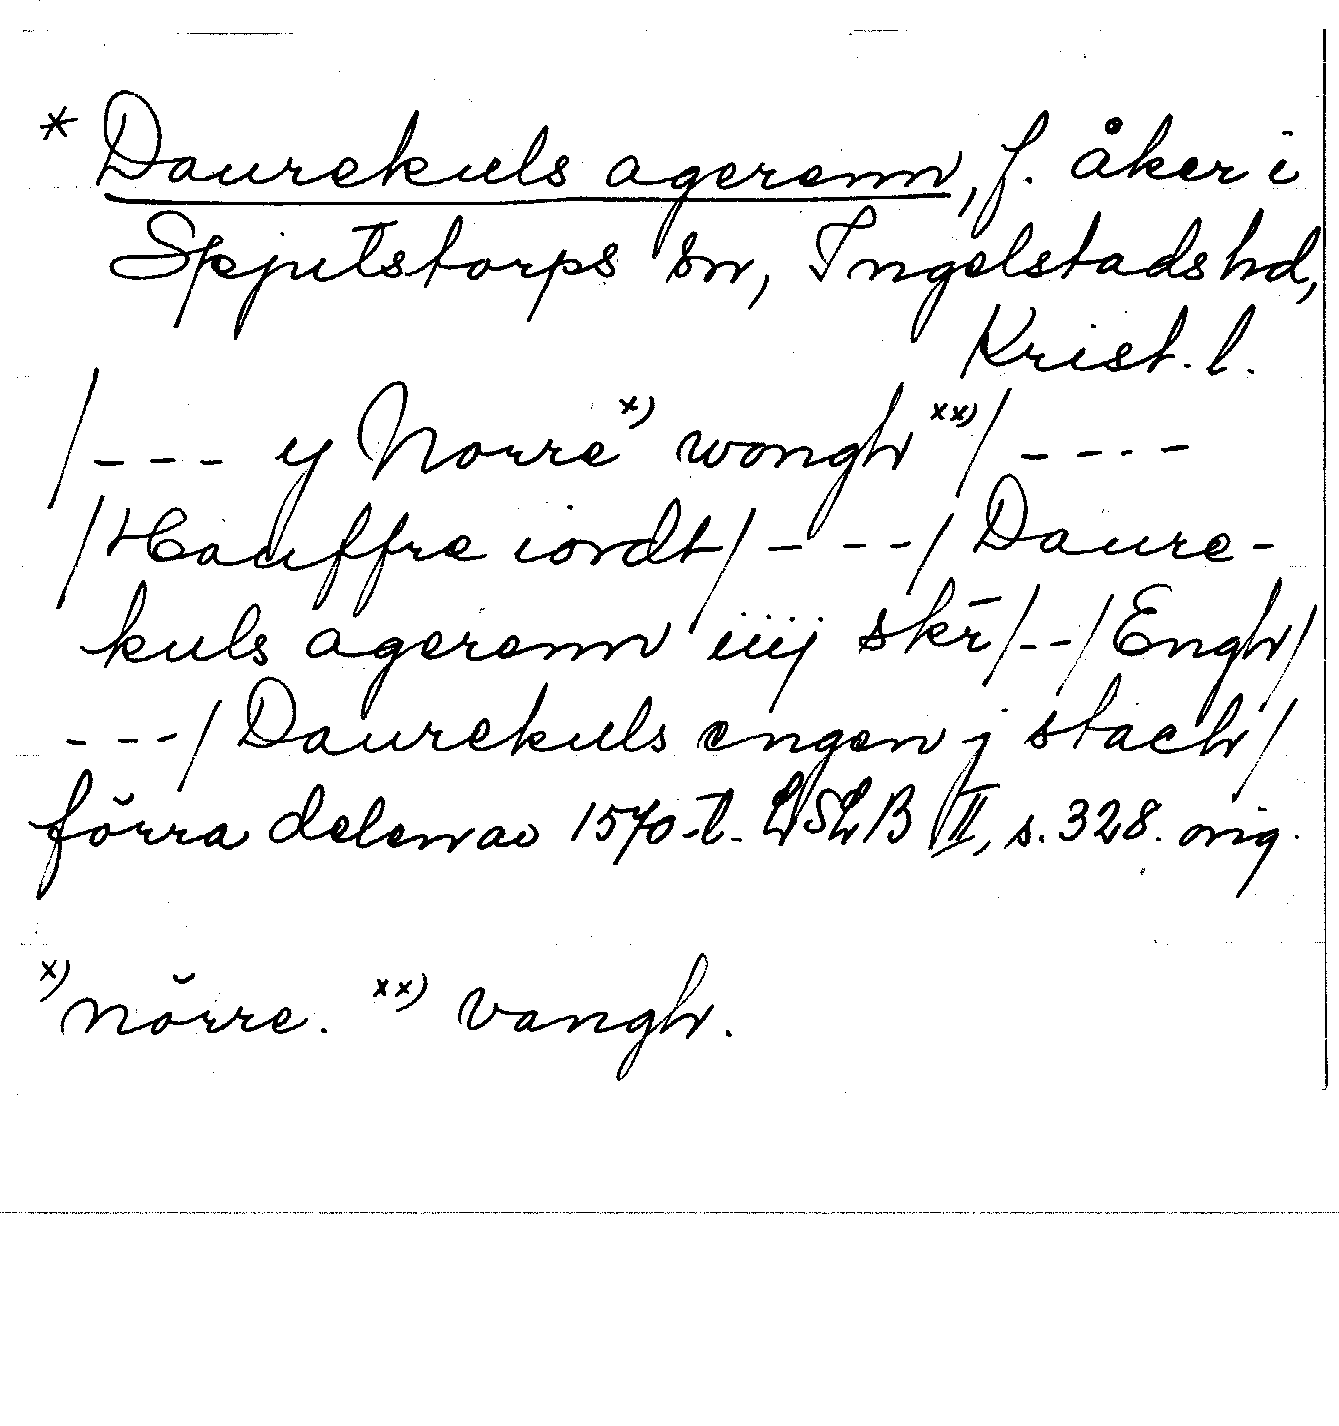 * Daurekuls agerenn, f. åker i
Spjutstorps sn, Ingelstads hd,
Krist. l.
/--- y Norre x) wongh xx)/ ----
/Hauffre iordt/ ---/ Daure-
kuls agerenn iiij skr̄/--/Engh/
---/ Daurekuls engen j stach/
förra delen av 1570-t. LSLB II, s. 328. orig.
x) nŏrre. xx) vangh.